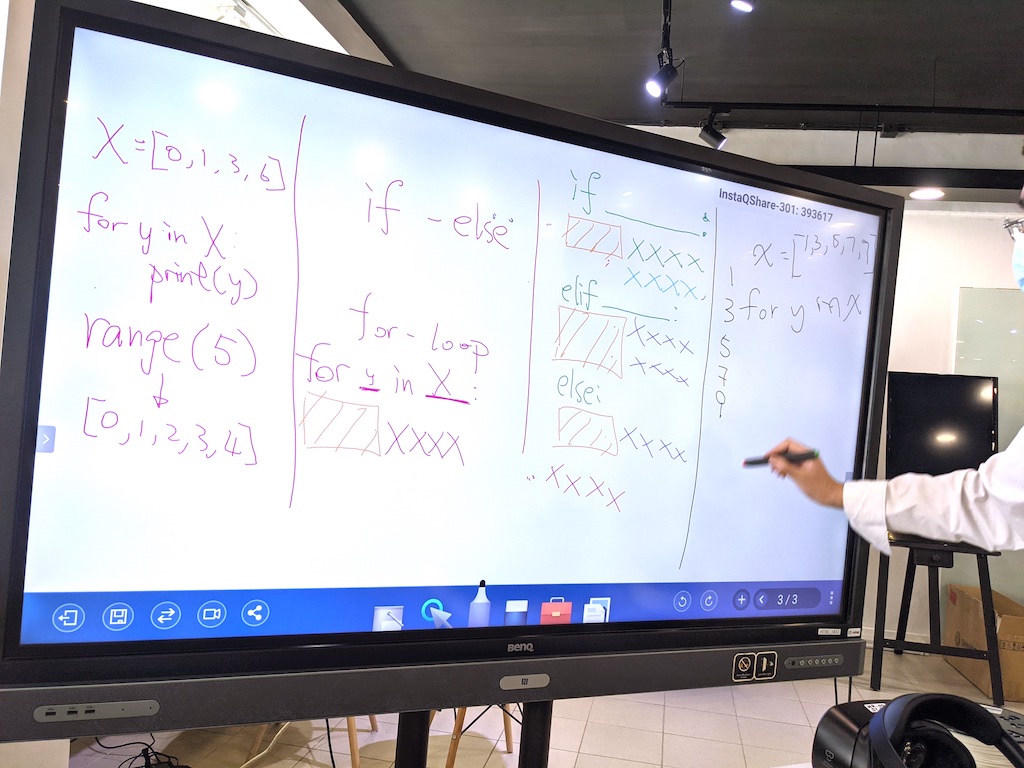 X=[0,1,3,6]
for y in X:
print(y)
range(5)
[0,1,2,3,4]
if - else:
for - loop
for y in X :
XXXX
if :
XXXX
XXXX
elif :
XXXX
XXXX
else:
XXXX
XXXX
InstaQShare-301: 393617
x=[1,3,5,7,9]
for y in X
1
3
5
7
9
3/3
BenQ